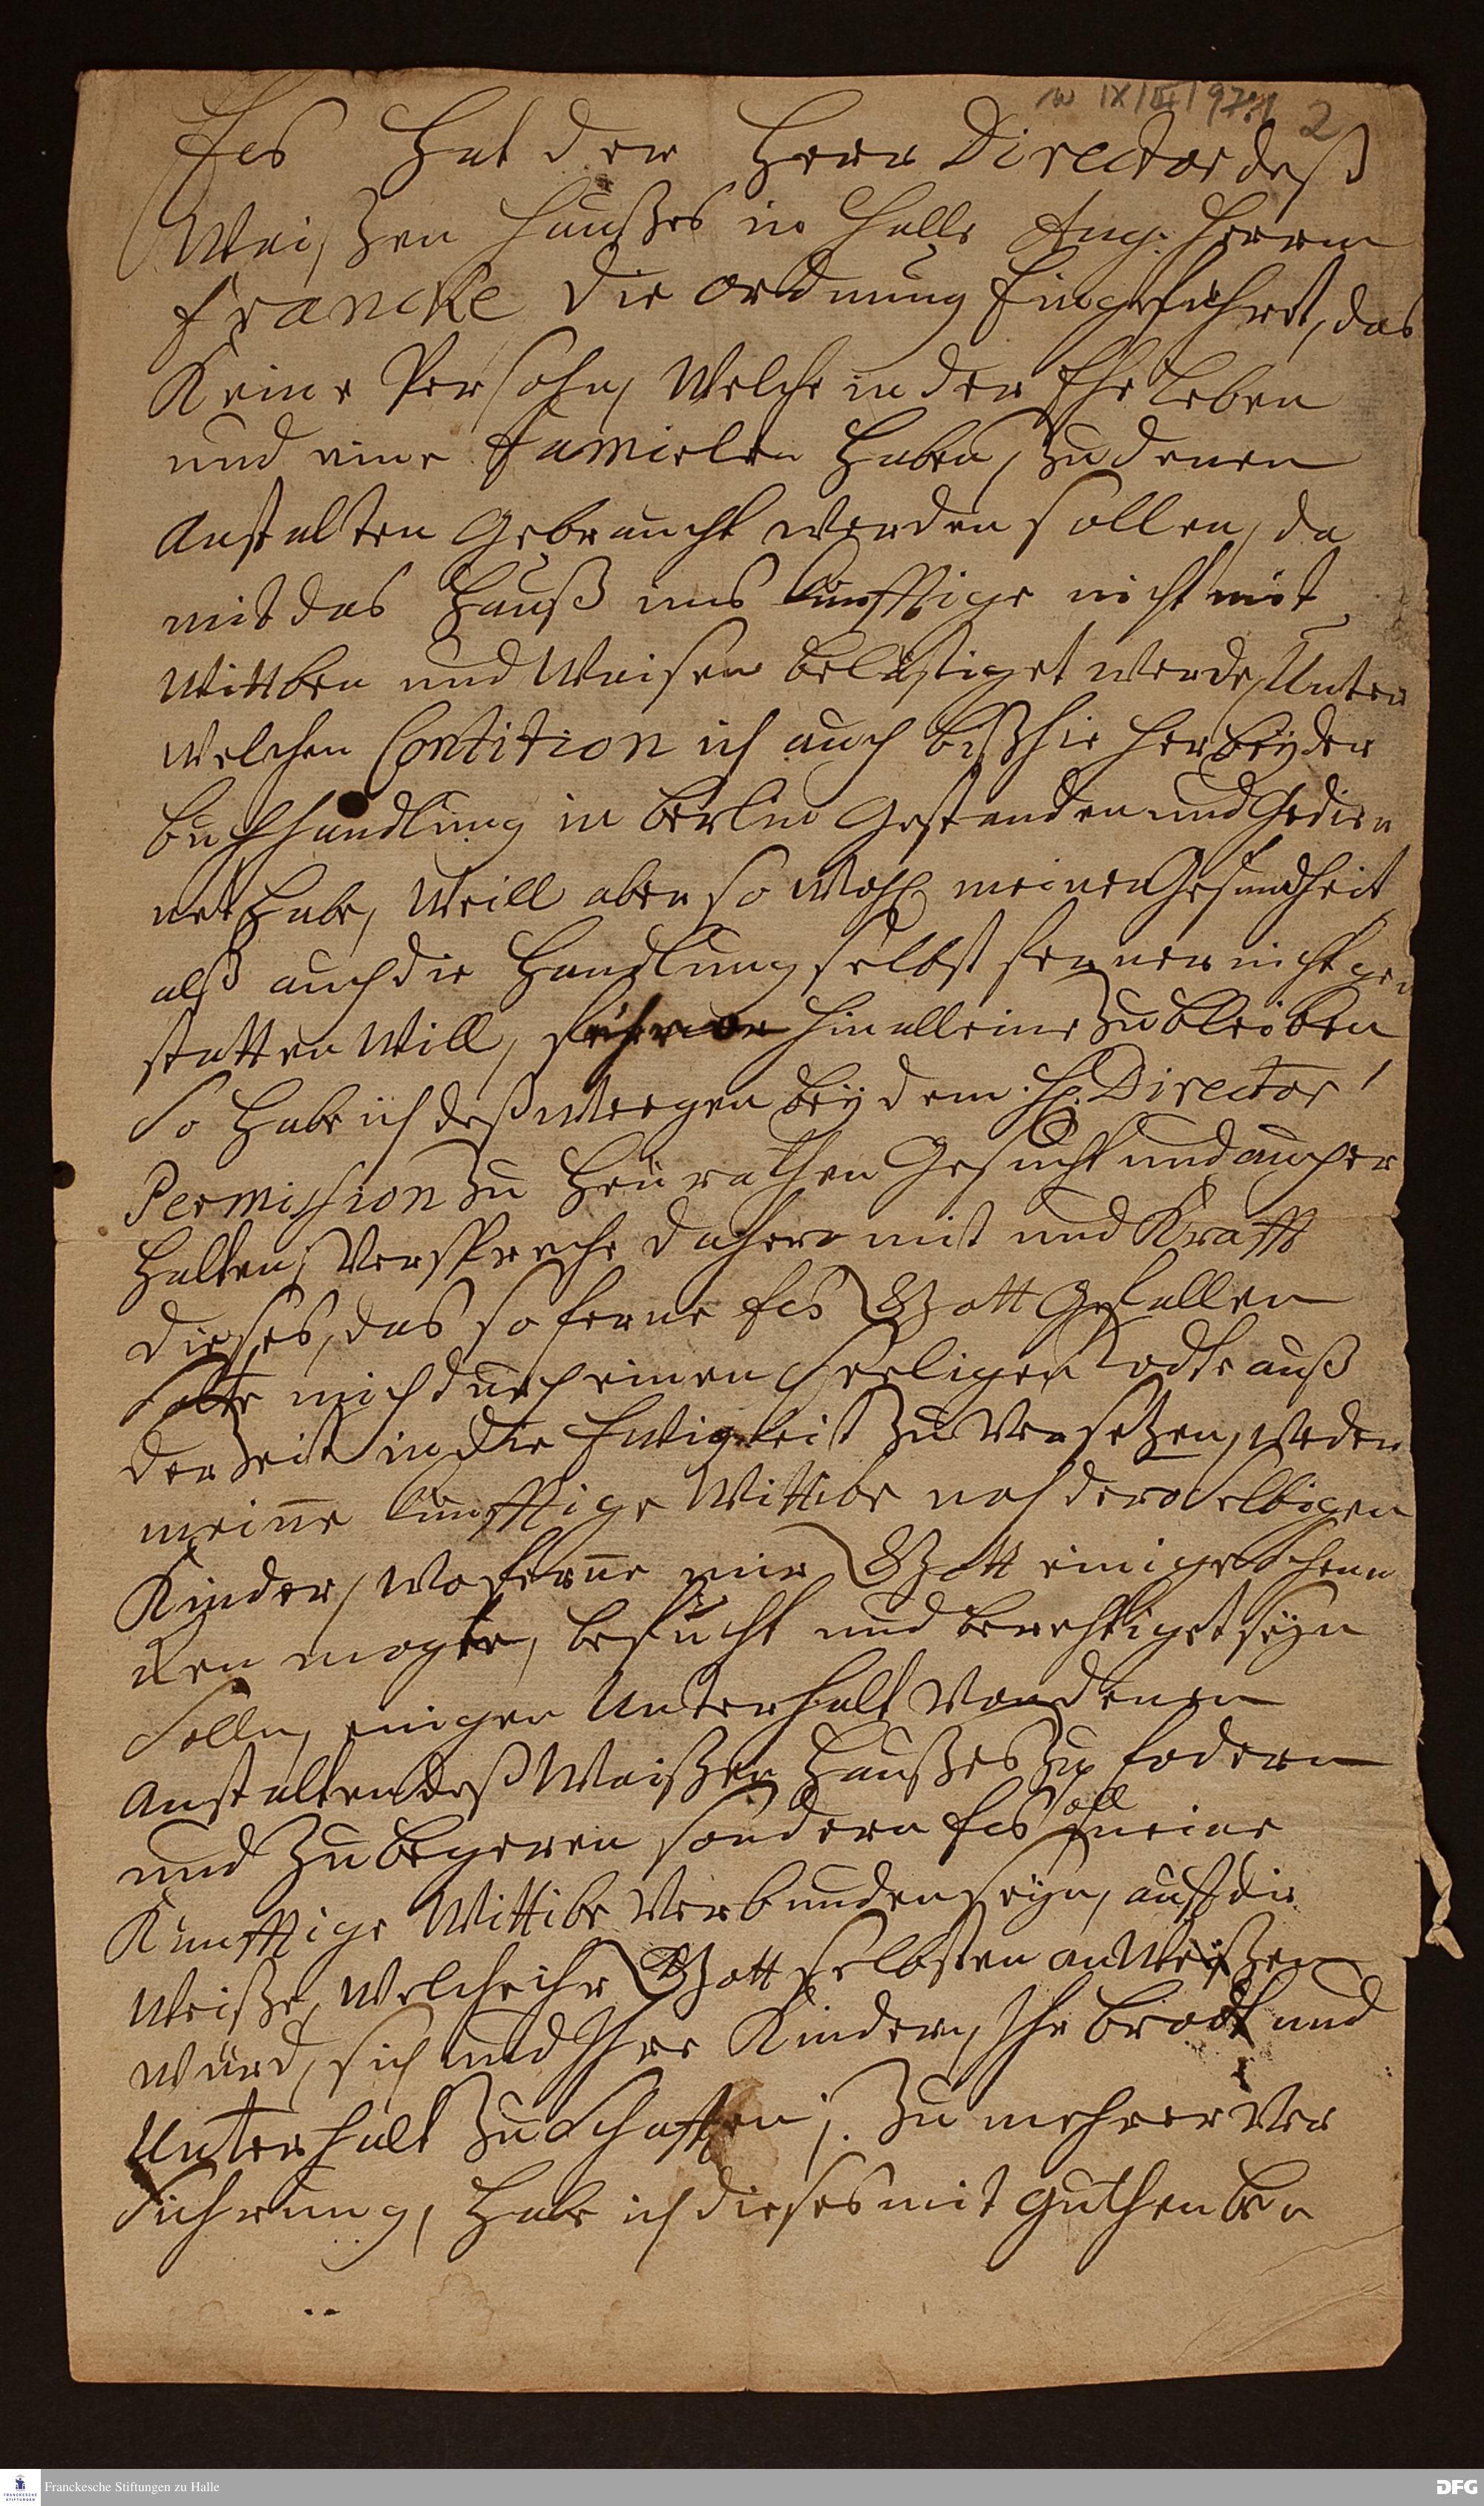 W IX/III/97:1 2
Es Hat der Herr Director deß
Waisen Haußes in Halle Aug: Herrm
Francke die Ordnung Eingeführet, das
Keine Persohn, Welche in der Ehe Leben
und eine Famielen Haben, Zu denen
Anstalten Gebraucht werden sollen, da
mit das Hauß ins künfftige nicht mit
Wittben und Waisen belästiget werde, Unter
welchen Contition ich auch bißhie her beÿ der
buchhandlung in Berlin Gestanden und Gedie
net Habe, Weill aber so Wohl meine Gesundheit
alß auch die Handlung selbst ferner nicht ge
statten Will, hin alleine Zu bleiben
So Habe ich deßwegen beÿ dem H. Director
Permission Zu Heürathen Gesucht und auch er
Halten, Verspreche dahero mit und Krafft
dieses, das so ferne Es Gott Gefallen
Solte mich durch einen Seeligen Todte auß
der Zeit in die Ewigkeit Zu Versetzen, weder
meine künfftige Wittibe noch deroselbigen
Kinder, wo ferne mir Gott einige schenc
ken mogte, befücht und berechtiget seÿn
Solln, einigen Unterhalt Von denen
Anstalten deß Waisen Haußes Zu fodern
und Zu begeren sondern Es soll meine
Künfftige Wittibe Verbunden seÿn, auff die
Weiße, Welche ihr Gott selbsten anWeißen
würd, sich und Ihre Kindern, Ihr brodt und
Unterhalt Zu Schaffen; Zu mehrer Ver
Sichrung, Habe ich dieses mit guthen be
Franckesche Stiftungen zu Halle
FRANCKESCHE STIFTUNGEN
DFG